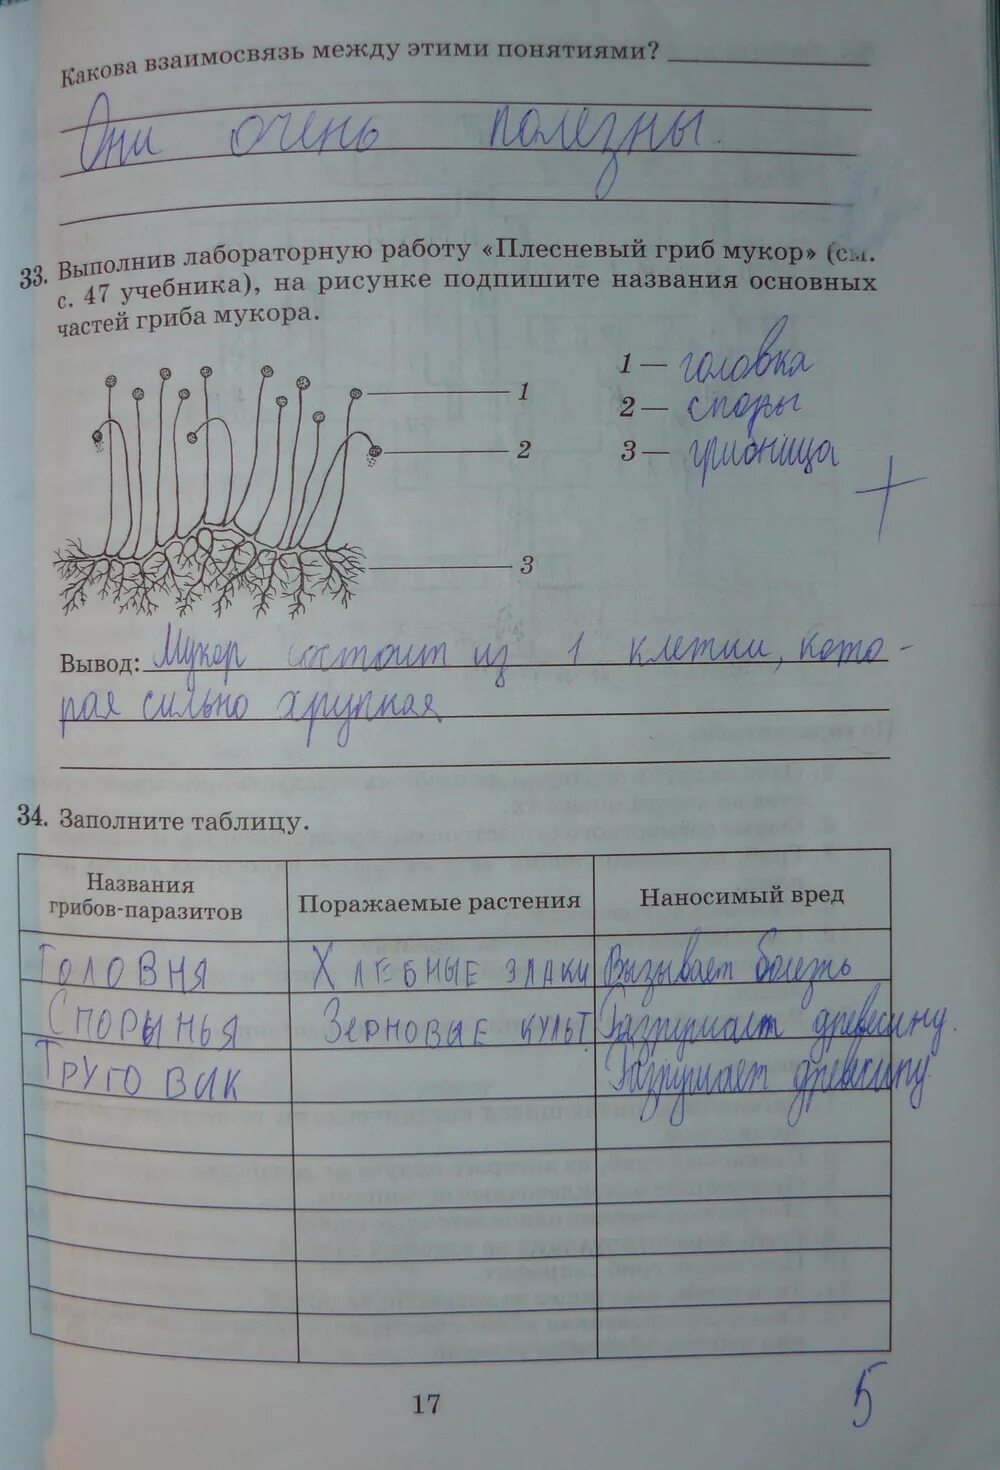 Какова взаимосвязь между этими понятиями?
Они очень полезны.
33. Выполнив лабораторную работу «Плесневый гриб мукор» (см.
с. 47 учебника), на рисунке подпишите названия основных
частей гриба мукора.
1 — головка
2 — споры
3 — грибница
1
2
3
Вывод: Мукор состоит из 1 клетки, кото-
рая сильно хрупкая
34. Заполните таблицу.
Названия грибов-паразитов Поражаемые растения Наносимый вред
Головня Хлебные злаки Вызывает болезнь
Спорынья Зерновые культ. Разрушает древесину.
Труговик Разрушает древесину.
17
5